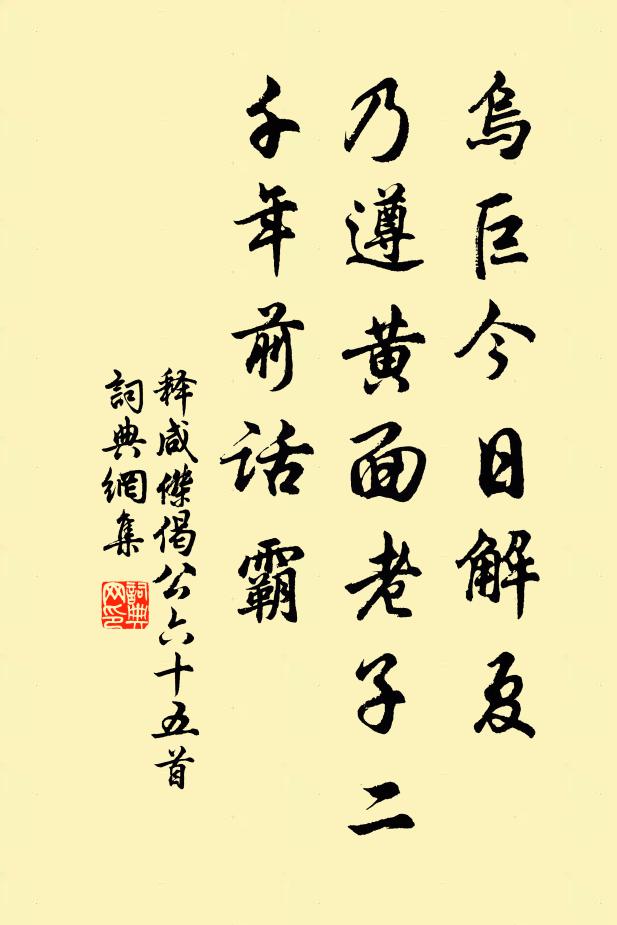 烏巨今日解夏
乃遵黃面老子二
千年前話霸
释咸傑偈公六十五首
詞典網集
詞典網印